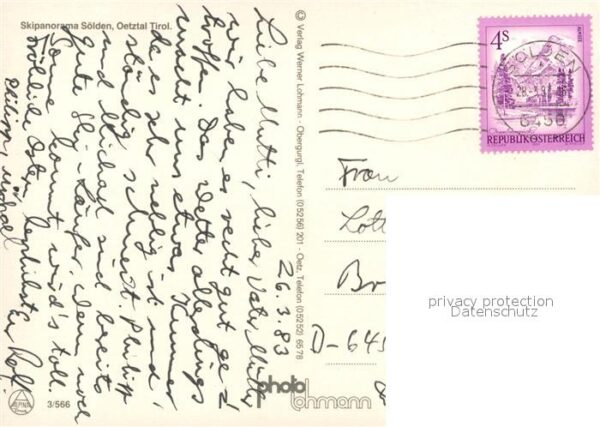 Skipanorama Sölden, Oetztal Tirol.
26.3.83
Liebe Mutti, lieber Vater Müller
wir haben es recht gut ge-
troffen. Das Wetter allerdings
macht uns etwas Kummer
da es sehr neblig ist und
ständig schneit. Philipp
und Michael sind bereits
gute Ski-Läufer. Wenn noch
Sonne kommt wird's toll.
Fröhliche Ostern
Philipp, Michael
© Verlag Werner Lohmann - Obergurgl, Telefon (05256) 201 - Oetz, Telefon (05252) 6578
4S
SÖLDEN
6450
REPUBLIK ÖSTERREICH
Frau
Lott
Br
D-645
privacy protection
Datenschutz
photo
lohmann
ALPINA
3/566